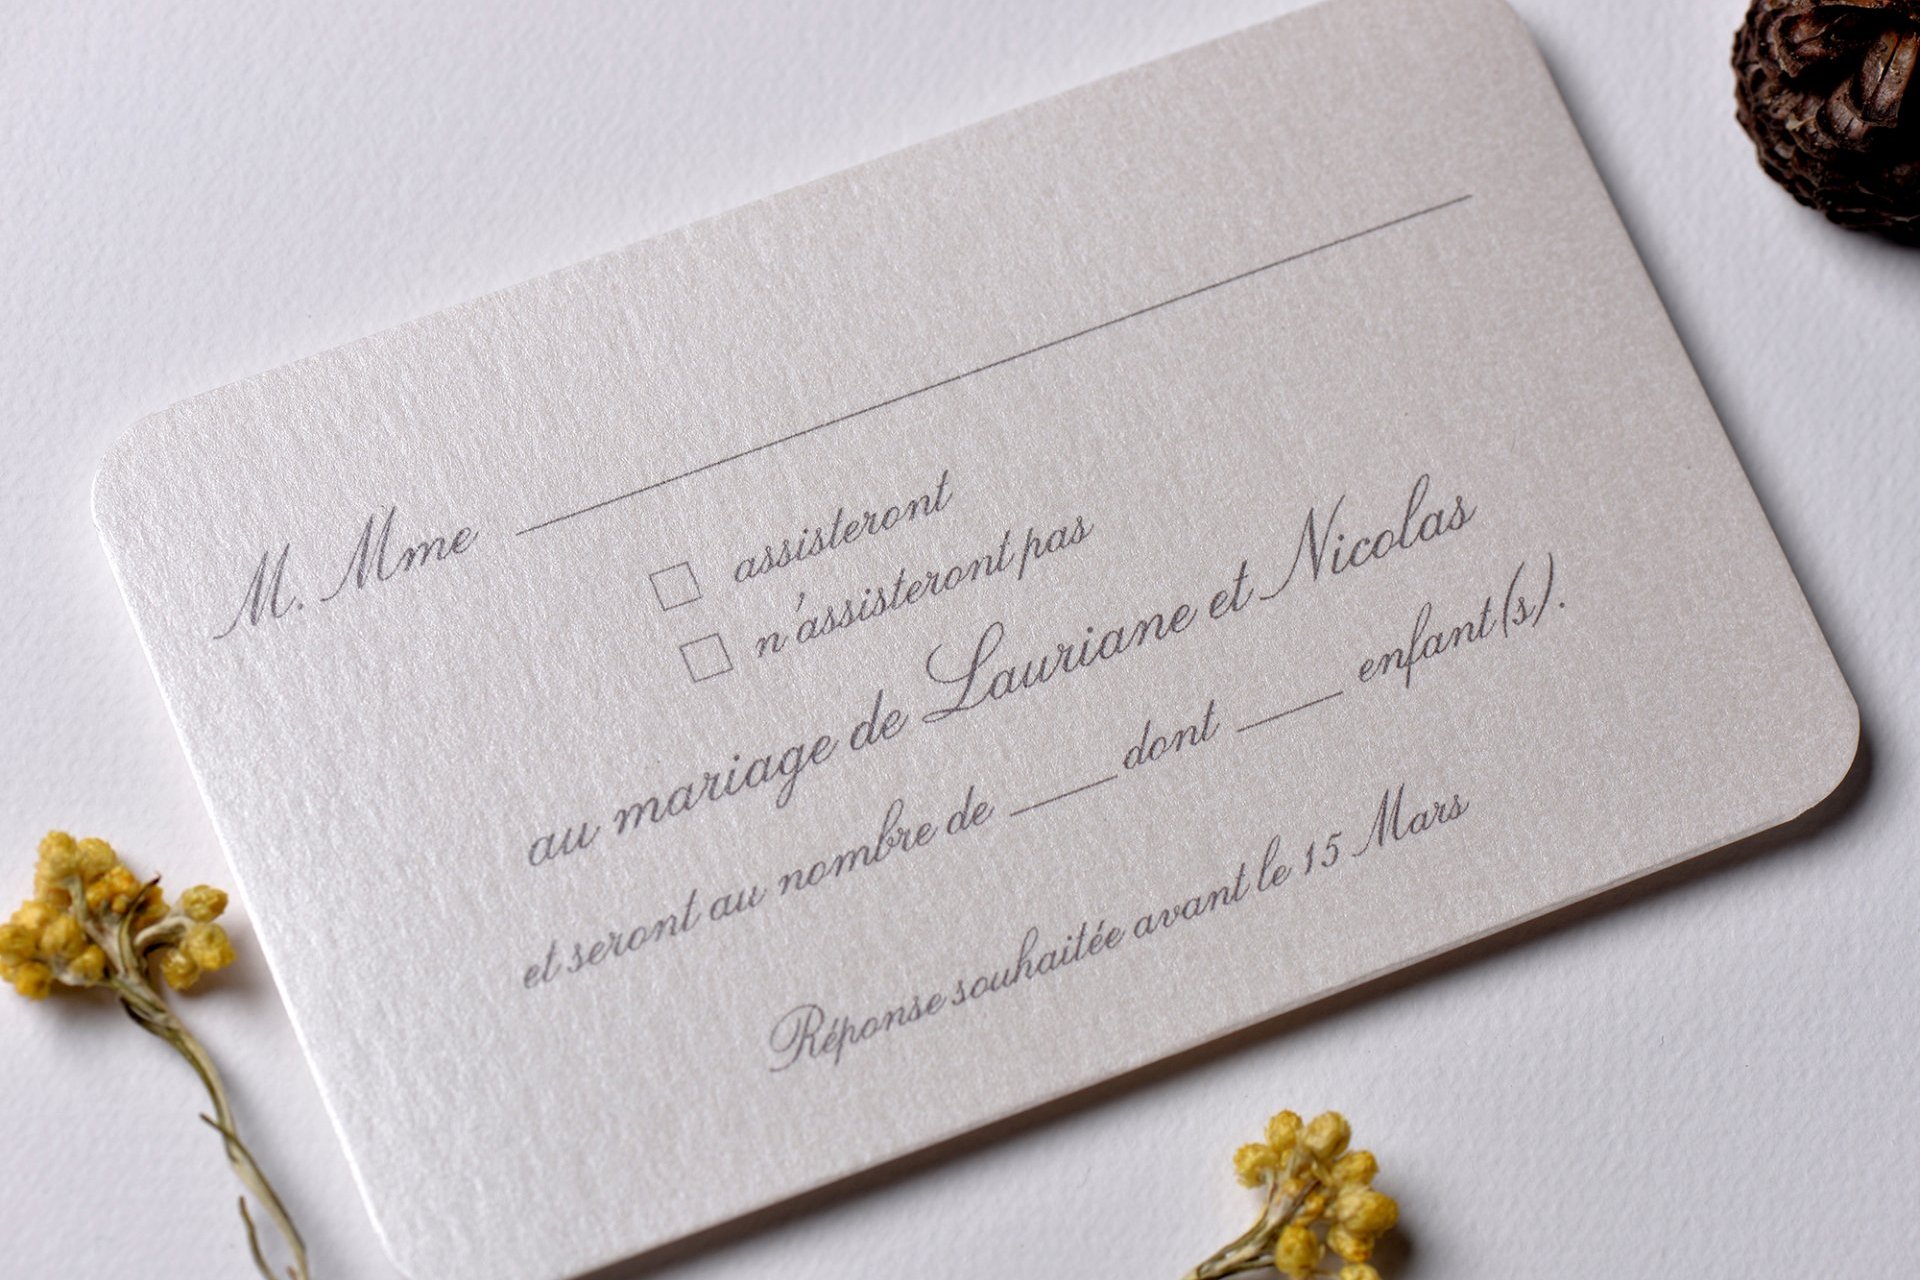 M. Mme ____________________
☐ assisteront
☐ n'assisteront pas
au mariage de Lauriane et Nicolas
et seront au nombre de ____ dont ____ enfant(s).
Réponse souhaitée avant le 15 Mars